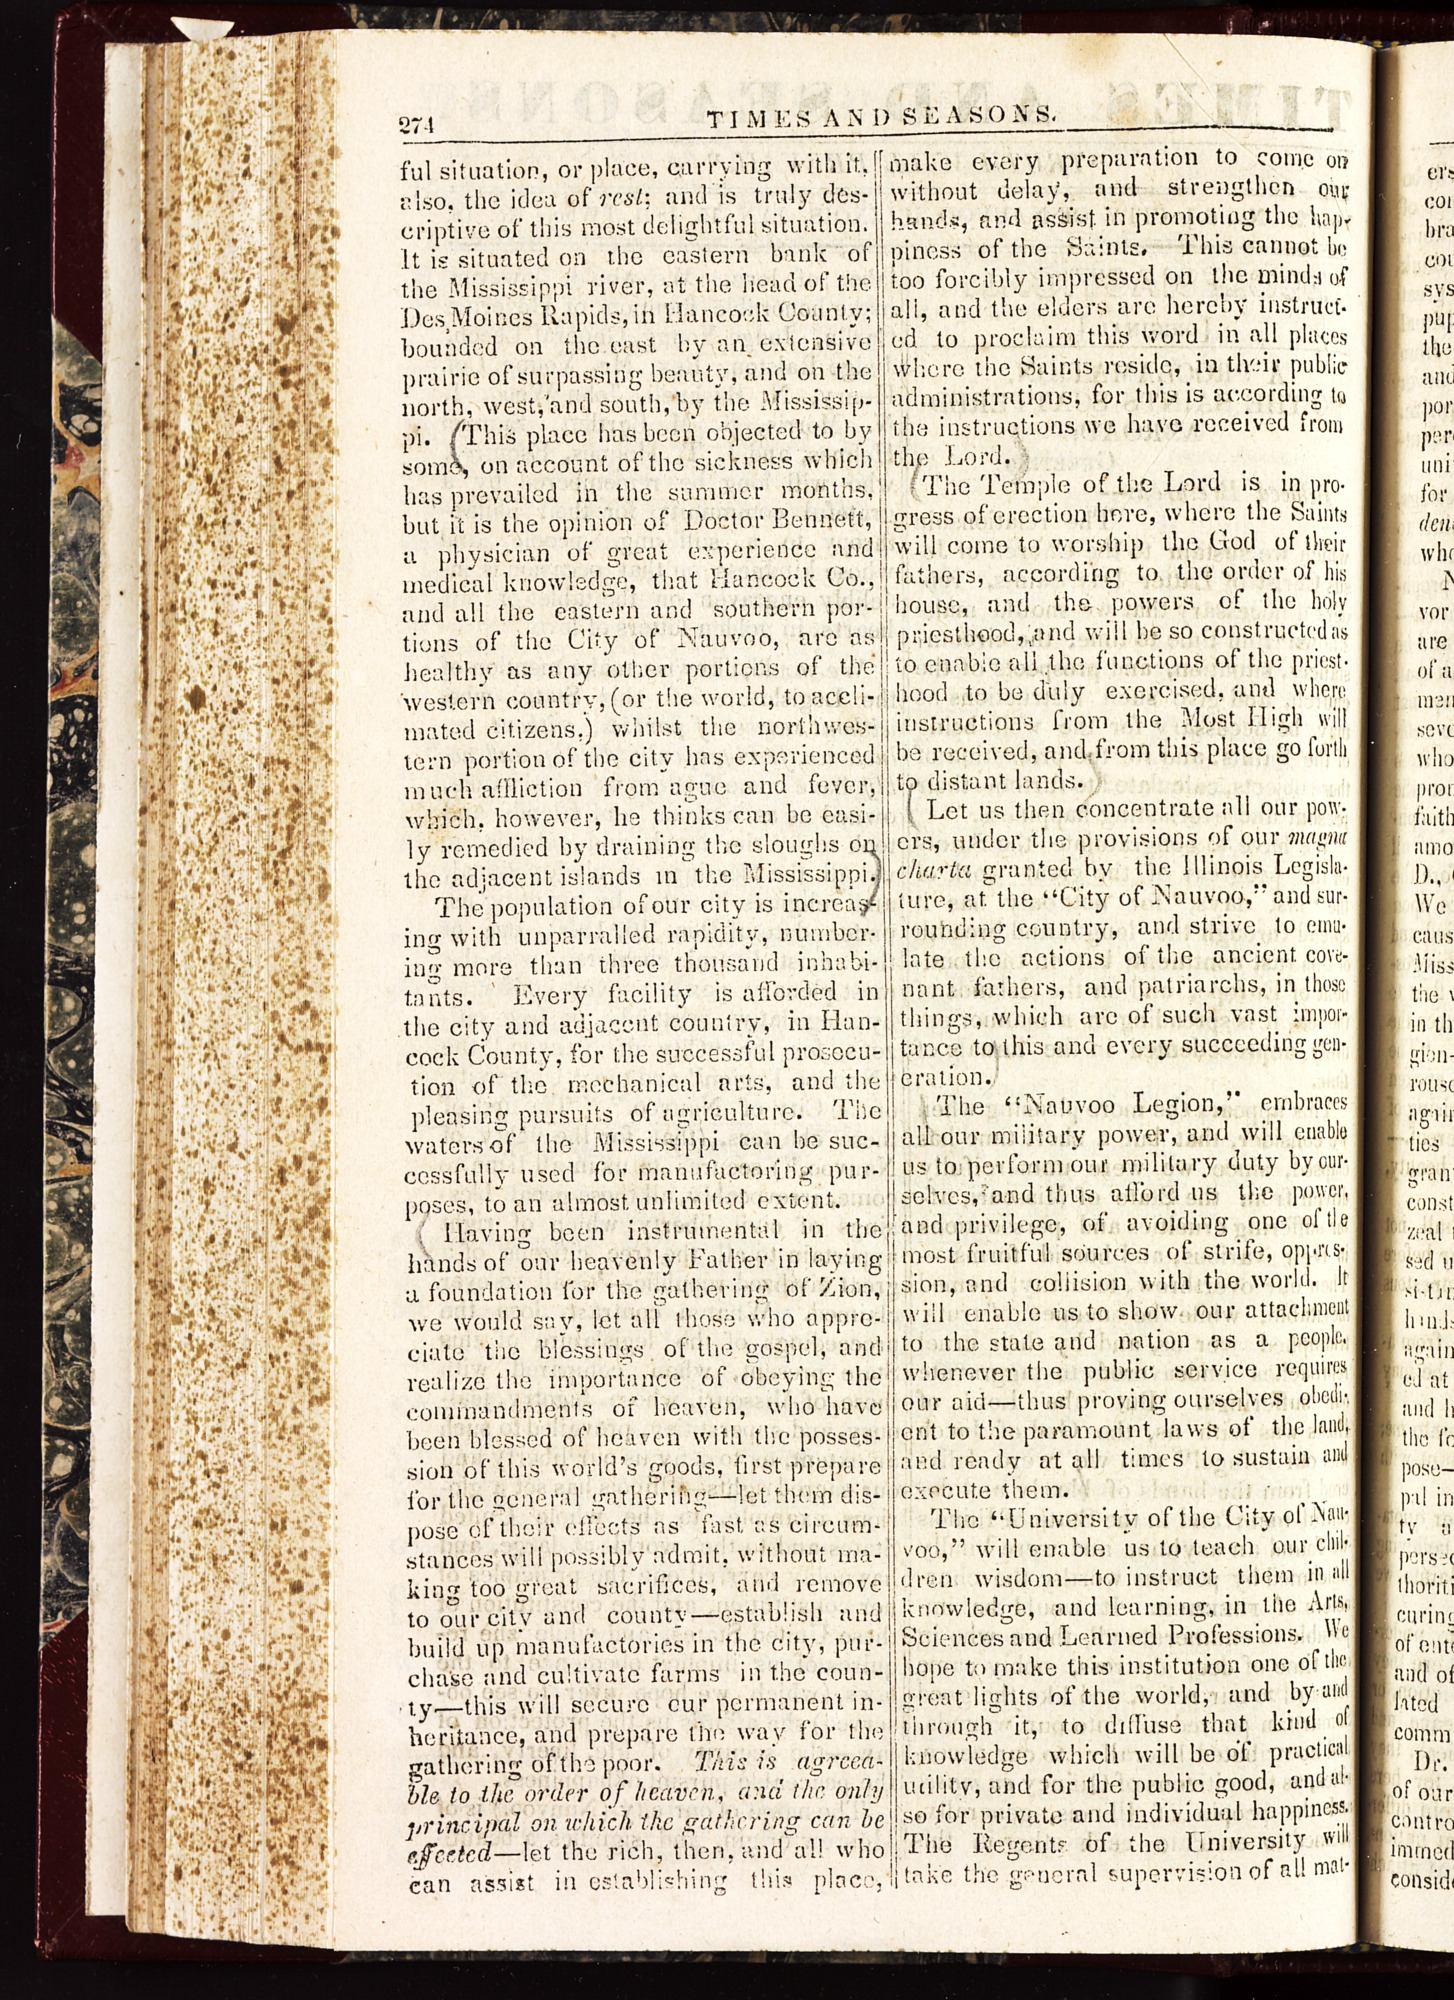 274
TIMES AND SEASONS.
ful situation, or place, carrying with it,
also, the idea of rest; and is truly des-
criptive of this most delightful situation.
It is situated on the eastern bank of
the Mississippi river, at the head of the
Des Moines Rapids, in Hancock County;
bounded on the east by an extensive
prairie of surpassing beauty, and on the
north, west, and south, by the Mississip-
pi. (This place has been objected to by
some, on account of the sickness which
has prevailed in the summer months,
but it is the opinion of Doctor Bennett,
a physician of great experience and
medical knowledge, that Hancock Co.,
and all the eastern and southern por-
tions of the City of Nauvoo, are as
healthy as any other portions of the
western country, (or the world, to accli-
mated citizens,) whilst the northwes-
tern portion of the city has experienced
much affliction from ague and fever,
which, however, he thinks can be easi-
ly remedied by draining the sloughs on
the adjacent islands in the Mississippi.)
The population of our city is increas-
ing with unparralled rapidity, number-
ing more than three thousand inhabi-
tants. Every facility is afforded in
the city and adjacent country, in Han-
cock County, for the successful prosecu-
tion of the mechanical arts, and the
pleasing pursuits of agriculture. The
waters of the Mississippi can be suc-
cessfully used for manufactoring pur-
poses, to an almost unlimited extent.
(Having been instrumental in the
hands of our heavenly Father in laying
a foundation for the gathering of Zion,
we would say, let all those who appre-
ciate the blessings of the gospel, and
realize the importance of obeying the
commandments of heaven, who have
been blessed of heaven with the posses-
sion of this world's goods, first prepare
for the general gathering—let them dis-
pose of their effects as fast as circum-
stances will possibly admit, without ma-
king too great sacrifices, and remove
to our city and county—establish and
build up manufactories in the city, pur-
chase and cultivate farms in the coun-
ty—this will secure our permanent in-
heritance, and prepare the way for the
gathering of the poor. This is agreea-
ble to the order of heaven, and the only
principal on which the gathering can be
effected—let the rich, then, and all who
can assist in establishing this place,
make every preparation to come on
without delay, and strengthen our
hands, and assist in promoting the hap-
piness of the Saints. This cannot be
too forcibly impressed on the minds of
all, and the elders are hereby instruct-
ed to proclaim this word in all places
where the Saints reside, in their public
administrations, for this is according to
the instructions we have received from
the Lord.)
(The Temple of the Lord is in pro-
gress of erection here, where the Saints
will come to worship the God of their
fathers, according to the order of his
house, and the powers of the holy
priesthood, and will be so constructed as
to enable all the functions of the priest-
hood to be duly exercised, and where
instructions from the Most High will
be received, and from this place go forth
to distant lands.)
(Let us then concentrate all our pow-
ers, under the provisions of our magna
charta granted by the Illinois Legisla-
ture, at the "City of Nauvoo," and sur-
rounding country, and strive to emu-
late the actions of the ancient cove-
nant fathers, and patriarchs, in those
things, which are of such vast impor-
tance to this and every succeeding gen-
eration.)
The "Nauvoo Legion," embraces
all our military power, and will enable
us to perform our military duty by our-
selves, and thus afford us the power,
and privilege, of avoiding one of the
most fruitful sources of strife, oppres-
sion, and collision with the world. It
will enable us to show our attachment
to the state and nation as a people,
whenever the public service requires
our aid—thus proving ourselves obedi-
ent to the paramount laws of the land,
and ready at all times to sustain and
execute them.
The "University of the City of Nau-
voo," will enable us to teach our chil-
dren wisdom—to instruct them in all
knowledge, and learning, in the Arts,
Sciences and Learned Professions. We
hope to make this institution one of the
great lights of the world, and by and
through it, to diffuse that kind of
knowledge which will be of practical
utility, and for the public good, and al-
so for private and individual happiness.
The Regents of the University will
take the general supervision of all mat-